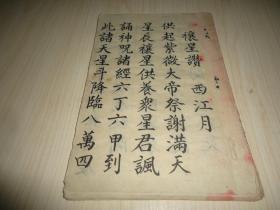 禳星讚　西江月
供起紫微大帝祭謝滿天
星長禳星供養衆星君諷
誦神咒諸經六丁六甲到
此諸天星斗降臨八萬四